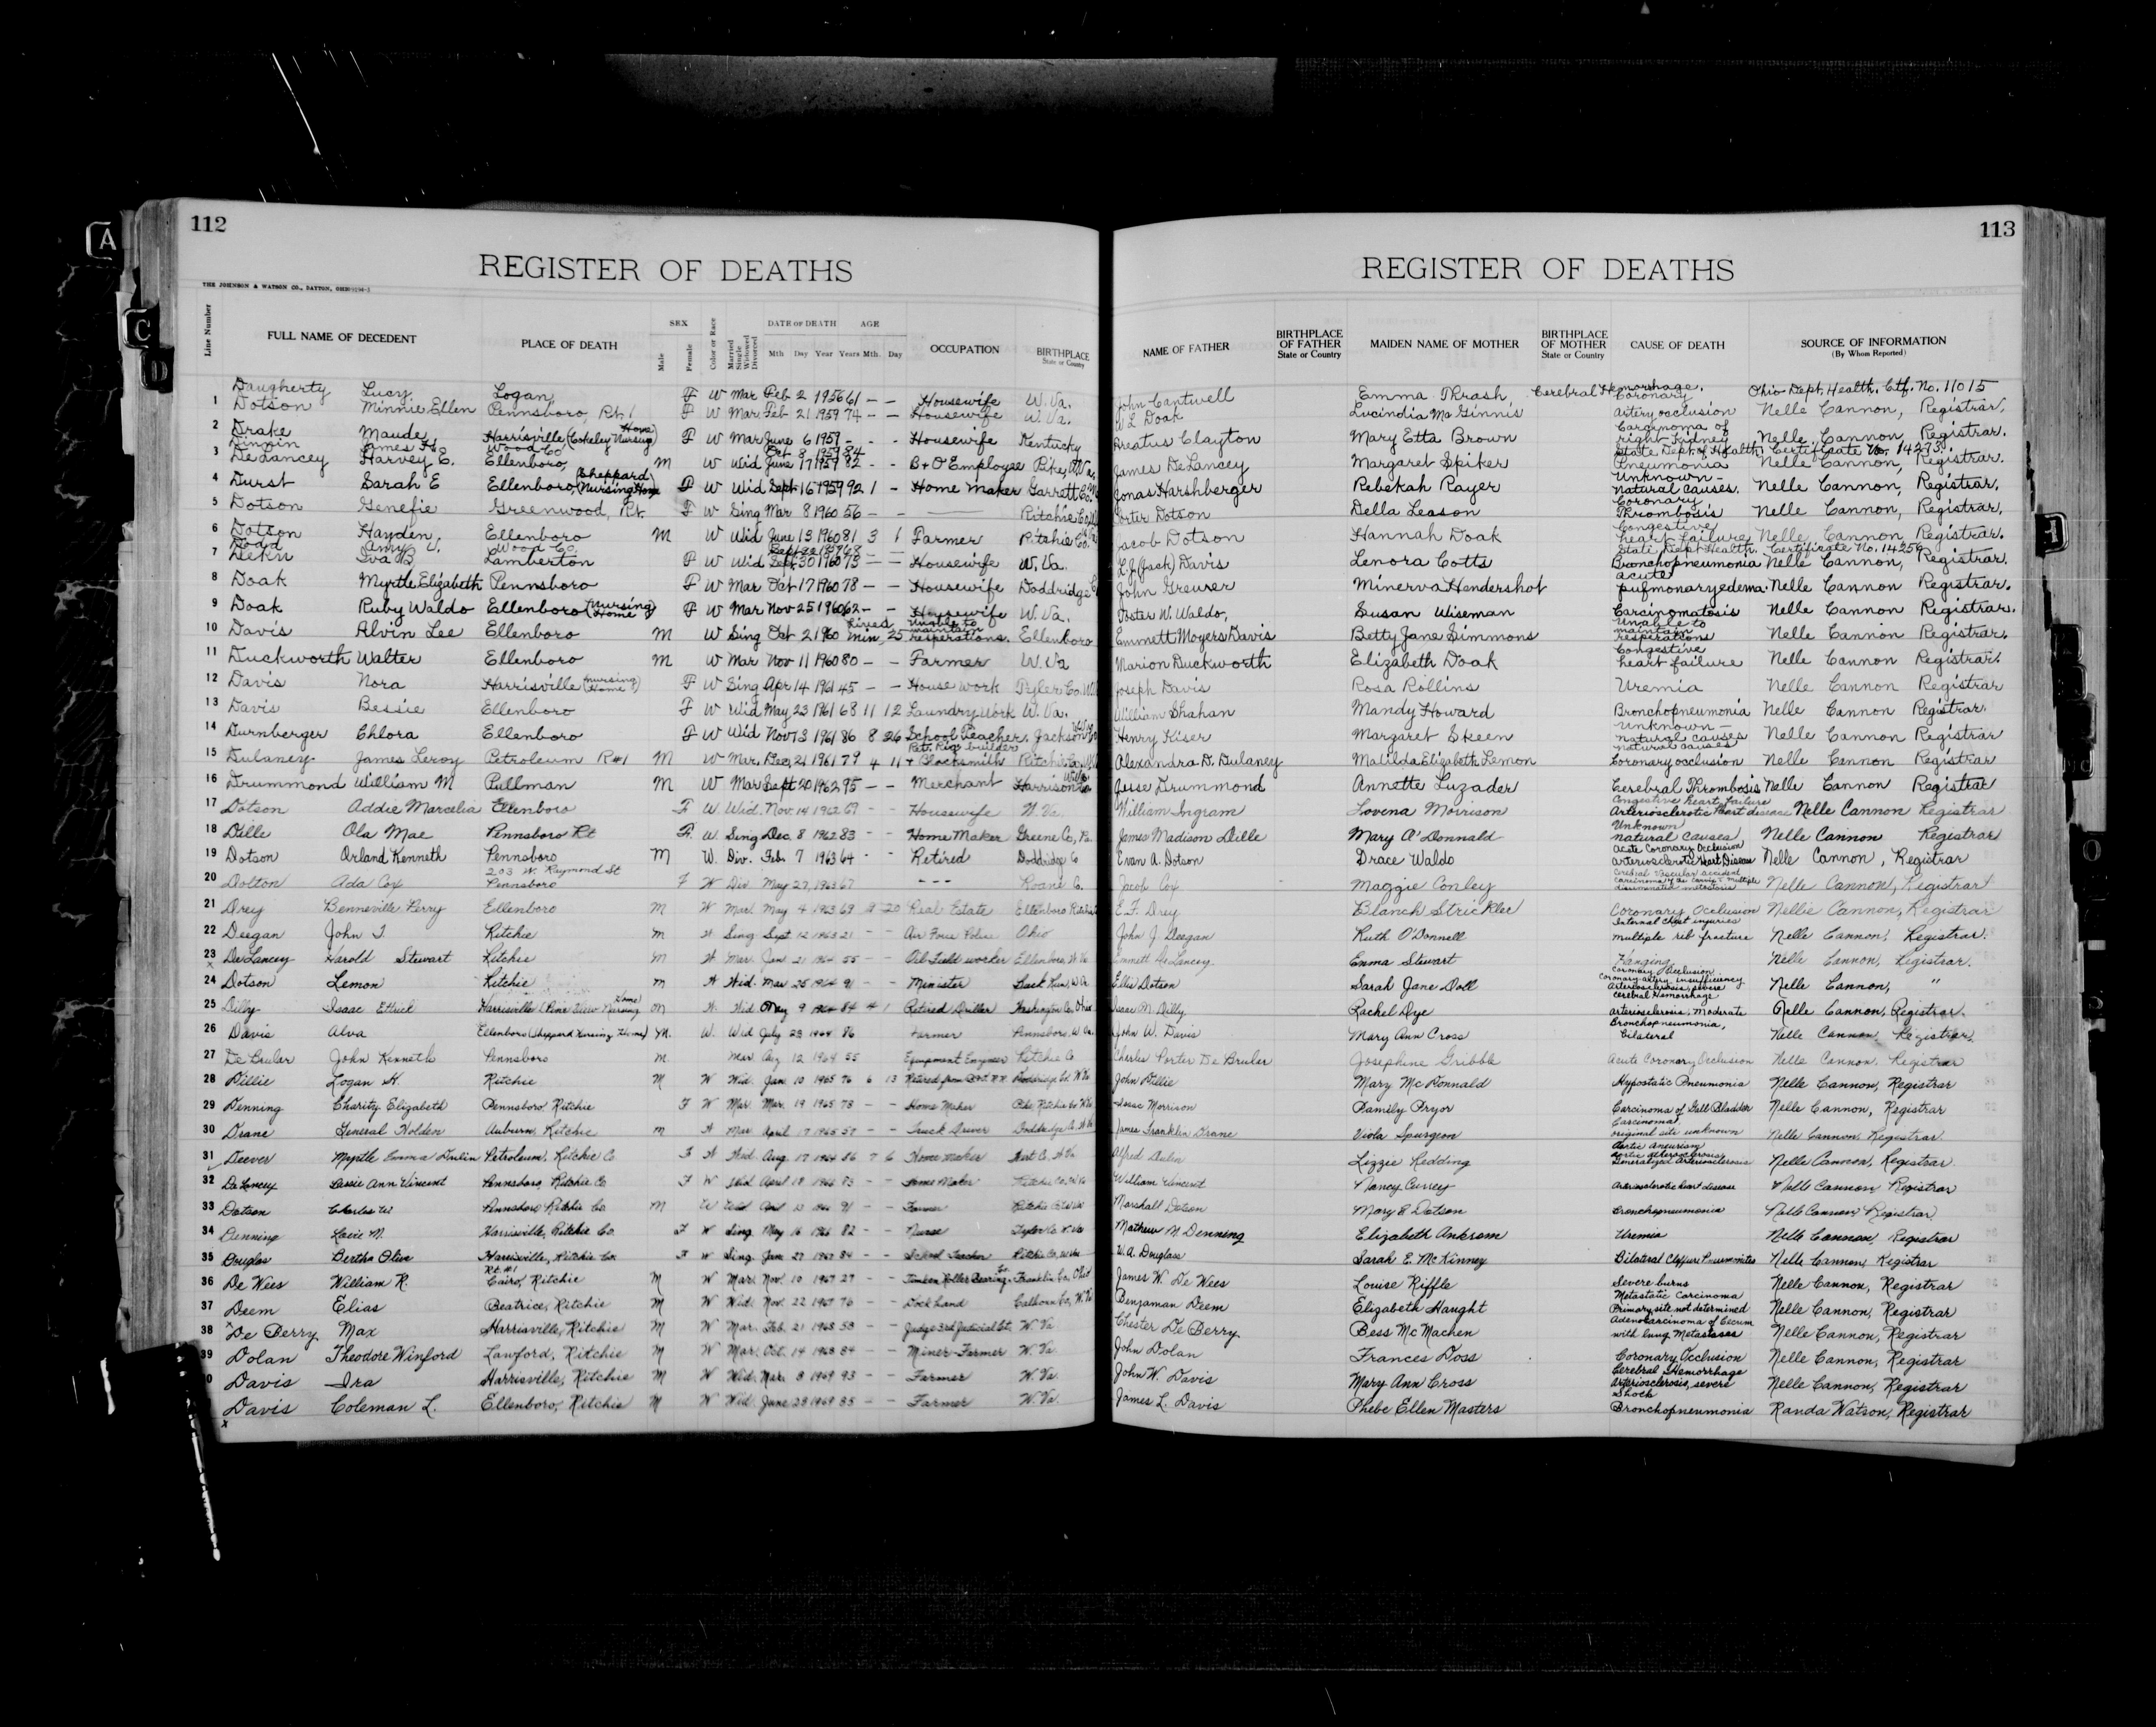 A
C
D
112
REGISTER OF DEATHS
THE JOHNSON & WATSON CO., DAYTON, OHIO
Line Number FULL NAME OF DECEDENT PLACE OF DEATH SEX Male Female Color or Race Married Single Widowed Divorced DATE OF DEATH Mth Day Year AGE Years Mth. Day OCCUPATION BIRTHPLACE State or Country
Daugherty Lucy Logan, F W Mar Feb 2 1956 61 - - Housewife W. Va.
1 Dotson Minnie Ellen Pennsboro, Rt. 1 F W Mar Feb 21 1959 74 - - Housewife W. Va.
2 Drake Maude Harrisville (Cokeley Nursing Home) F W Mar June 6 1959 - - - Housewife Kentucky
James Wood Co Oct 8 1959 84
3 DeLancey Harvey C. Ellenboro, M W Wid June 17 1959 82 - - B+O Employee Pike, W.Va.
4 Durst Sarah E Ellenboro, (Sheppard Nursing Home) F W Wid Sept 16 1959 92 1 - Home Maker Garrett Co.
5 Dotson Genefie Greenwood, Rt. F W Sing Mar 8 1960 56 - - Ritchie Co.
6 Dotson Hayden Ellenboro M W Wid June 13 1960 81 3 1 Farmer Ritchie Co.
Dodd Amy Wood Co.
7 Iva B Lamberton F W Wid Sept 30 1960 73 - - Housewife W. Va.
8 Doak Myrtle Elizabeth Pennsboro F W Mar Oct 17 1960 78 - - Housewife Doddridge
9 Doak Ruby Waldo Ellenboro (Nursing Home) F W Mar Nov 25 1960 62 - - Housewife W. Va.
10 Davis Alvin Lee Ellenboro M W Sing Oct 2 1960 Lived min. 25 Unable to maintain resperations. Ellenboro
11 Duckworth Walter Ellenboro M W Mar Nov 11 1960 80 - - Farmer W. Va
12 Davis Nora Harrisville (Nursing Home) F W Sing Apr 14 1961 45 - - House work Tyler Co.
13 Davis Bessie Ellenboro F W Wid May 23 1961 68 11 12 Laundry Work W. Va.
14 Durnberger Chlora Ellenboro F W Wid Nov 13 1961 86 8 26 School Teacher. Jackson
15 Dulaney James Leroy Petroleum R#1 M W Mar. Dec. 21 1961 79 4 11 Ret. Rig builder + Blacksmith Ritchie Co.
16 Drummond William M Pullman M W Mar Sept 20 1962 95 - - Merchant Harrison Co.
17 Dotson Addie Marcelia Ellenboro F W. Wid. Nov. 14 1962 69 - - Housewife W. Va
18 Dille Ola Mae Pennsboro Rt F. W. Sing Dec. 8 1962 83 - - Home Maker Greene Co, Pa.
19 Dotson Orland Kenneth Pennsboro M W. Div. Feb. 7 1963 64 - - Retired Doddridge Co
20 Dolton Ada Cox 203 W. Raymond St Pennsboro F W Div May 27, 1963 67 - - - Roane Co.
21 Drey Benneville Perry Ellenboro M W Mar. May 4 1963 69 20 Real Estate Ellenboro
22 Deegan John J. Ritchie M W Sing Sept 12 1963 21 - - Air Force Police Ohio
23 DeLancey Harold Stewart Ritchie M W Mar. Jan 21 1964 55 - - Oil Field worker Ellenboro, W. Va
24 Dotson Lemon Ritchie M W Wid. Mar 25 1964 91 - - Minister
25 Dilly Isaac Harrisville (Pine View Nursing Home) M W. Wid May 9 1964 84 4 1 Retired Driller Washington Co, Ohio
26 Davis Alva Ellenboro (Sheppard Nursing Home) M. W. Wid July 23 1964 86 Farmer Pennsboro, W. Va.
27 De Bruler John Kenneth Pennsboro M. Mar Aug 12 1964 55 Equipment Engineer Ritchie Co
28 Dillie Logan H. Ritchie M W Wid. Jan 10 1965 76 6 13 Retired from B&O R.R. Doddridge Co. W Va
29 Denning Charity Elizabeth Pennsboro, Ritchie F W Mar. Mar. 19 1965 73 - - Home Maker Ritchie Co W.Va
30 Drane General Holden Auburn, Ritchie M W Mar April 17 1965 57 - - Truck Driver Doddridge Co. W Va
31 Deever Myrtle Emma Dulin Petroleum, Ritchie Co F W Wid. Aug. 17 1964 86 7 6 Home Maker Wirt Co. W Va
32 DeLancey Lassie Ann Vincent Pennsboro, Ritchie Co F W Wid April 18 1966 83 - - Home Maker
33 Dotson Charles W Pennsboro, Ritchie Co M W 91 - - Farmer
34 Denning Harrisville, Ritchie Co. F W Sing. May 16 1966 82 - - Nurse Tyler Co. W. Va
35 Douglas Bertha Olive Harrisville, Ritchie Co. F W Sing. June 27 1967 84 - - School Teacher Ritchie Co, W.Va
36 De Wees William R. Rt. #1 Cairo, Ritchie M W Mar. Nov. 10 1967 27 - - Timken Roller Bearing Co. Franklin Co, Ohio
37 Deem Elias Beatrice, Ritchie M W Wid. Nov. 22 1967 76 - - Dock hand Calhoun Co, W. Va
38 De Berry Max Harrisville, Ritchie M W Mar. Feb. 21 1968 58 - - Judge 3rd Judicial Ct. W. Va
39 Dolan Theodore Winford Lawford, Ritchie M W Mar. Oct. 14 1968 84 - - Miner-Farmer W. Va.
Davis Ira Harrisville, Ritchie M W Wid. Mar. 8 1969 93 - - Farmer W. Va.
Davis Coleman L. Ellenboro, Ritchie M W Wid. June 28 1969 85 - - Farmer W. Va.
113
REGISTER OF DEATHS
NAME OF FATHER BIRTHPLACE OF FATHER State or Country MAIDEN NAME OF MOTHER BIRTHPLACE OF MOTHER State or Country CAUSE OF DEATH SOURCE OF INFORMATION (By Whom Reported)
John Cantwell Emma Thrash Cerebral Hemorrhage. Ohio Dept. Health. Ctf. No. 11015
W L Doak Lucindia McGinnis Coronary artery occlusion Nelle Cannon, Registrar.
Areatus Clayton Mary Etta Brown Carcynoma of right Kidney Nelle Cannon, Registrar.
State Dept. of Health Certificate No. 14273
James DeLancey Margaret Spiker Pneumonia Nelle Cannon, Registrar.
Jonas Harshberger Rebekah Rayer Unknown - natural causes. Nelle Cannon, Registrar.
Porter Dotson Della Leason Coronary Thrombosis Nelle Cannon, Registrar,
Jacob Dotson Hannah Doak Congestive heart failure Nelle Cannon, Registrar.
State Dept Health. Certificate No. 14256
L.J. (Jack) Davis Lenora Cotts Bronchopneumonia Nelle Cannon, Registrar.
John Grewer Minerva Hendershot acute pulmonary edema. Nelle Cannon Registrar.
Foster W. Waldo, Susan Wiseman Carcinomatosis Nelle Cannon Registrar.
Emmett Moyers Davis Betty Jane Simmons Unable to maintain resperations Nelle Cannon Registrar.
Marion Duckworth Elizabeth Doak Congestive heart failure Nelle Cannon Registrar.
Joseph Davis Rosa Rollins Uremia Nelle Cannon Registrar
William Shahan Mandy Howard Bronchopneumonia Nelle Cannon Registrar.
Henry Kiser Margaret Skeen Unknown - natural causes Nelle Cannon Registrar
natural causes
Alexandra D. Dulaney Matilda Elizabeth Lemon Coronary occlusion Nelle Cannon Registrar
Jesse Drummond Annette Luzader Cerebral Thrombosis Nelle Cannon Registrar
William Ingram Lovena Morrison Congestive heart failure Arteriosclerotic heart disease Nelle Cannon Registrar
James Madison Dille Mary O'Donnald Unknown natural causes Nelle Cannon Registrar
Evan A. Dotson Drace Waldo Acute Coronary Occlusion arteriosclerotic Heart Disease Nelle Cannon, Registrar
Jacob Cox Maggie Conley Cerebral Vascular accident Nelle Cannon, Registrar
E. F. Drey Blanch Strickler Coronary Occlusion Nellie Cannon, Registrar
John J. Deegan Ruth O'Donnell Internal Chest injuries multiple rib fracture Nelle Cannon, Registrar.
Emmett DeLancey Emma Stewart Hanging Nelle Cannon, Registrar.
Ellis Dotson Sarah Jane Doll Coronary Occlusion Coronary artery insufficiency Nelle Cannon, "
Isaac M. Dilly Rachel Dye Arteriosclerosis, severe Cerebral Hemorrhage arteriosclerosis, Moderate Nelle Cannon, Registrar.
John W. Davis Mary Ann Cross Bronchopneumonia, Bilateral Nelle Cannon, Registrar.
Charles Porter De Bruler Josephine Gribble Acute Coronary Occlusion Nelle Cannon, Registrar
John Dillie Mary McDonnald Hypostatic Pneumonia Nelle Cannon, Registrar
Isaac Morrison Pamily Pryor Carcinoma of Gall Bladder Nelle Cannon, Registrar
James Franklin Drane Viola Spurgeon Carcinoma, original site unknown Nelle Cannon, Registrar.
Alfred Dulin Lizzie Redding Aortic Aneurism Aortic atherosclerosis Generalized Arteriosclerosis Nelle Cannon, Registrar
William Vincent Nancy Currey Arteriosclerotic heart disease Nelle Cannon Registrar
Marshall Dotson Mary E Dotson Bronchopneumonia Nelle Cannon, Registrar
Mathew M Denning Elizabeth Ankrom Uremia Nelle Cannon, Registrar
W. A. Douglass Sarah E. McKinney Bilateral Pneumonitis Nelle Cannon, Registrar
James W. De Wees Louise Riffle Severe burns Nelle Cannon, Registrar
Benjaman Deem Elizabeth Haught Metastatic Carcinoma Primary site not determined Nelle Cannon, Registrar
Chester De Berry Bess McMachen Adenocarcinoma of Cecum with lung Metastases Nelle Cannon, Registrar
John Dolan Frances Doss Coronary Occlusion Nelle Cannon, Registrar
John W. Davis Mary Ann Cross Cerebral Hemorrhage Arteriosclerosis, severe Nelle Cannon, Registrar
James L. Davis Phebe Ellen Masters Shock Bronchopneumonia Randa Watson, Registrar